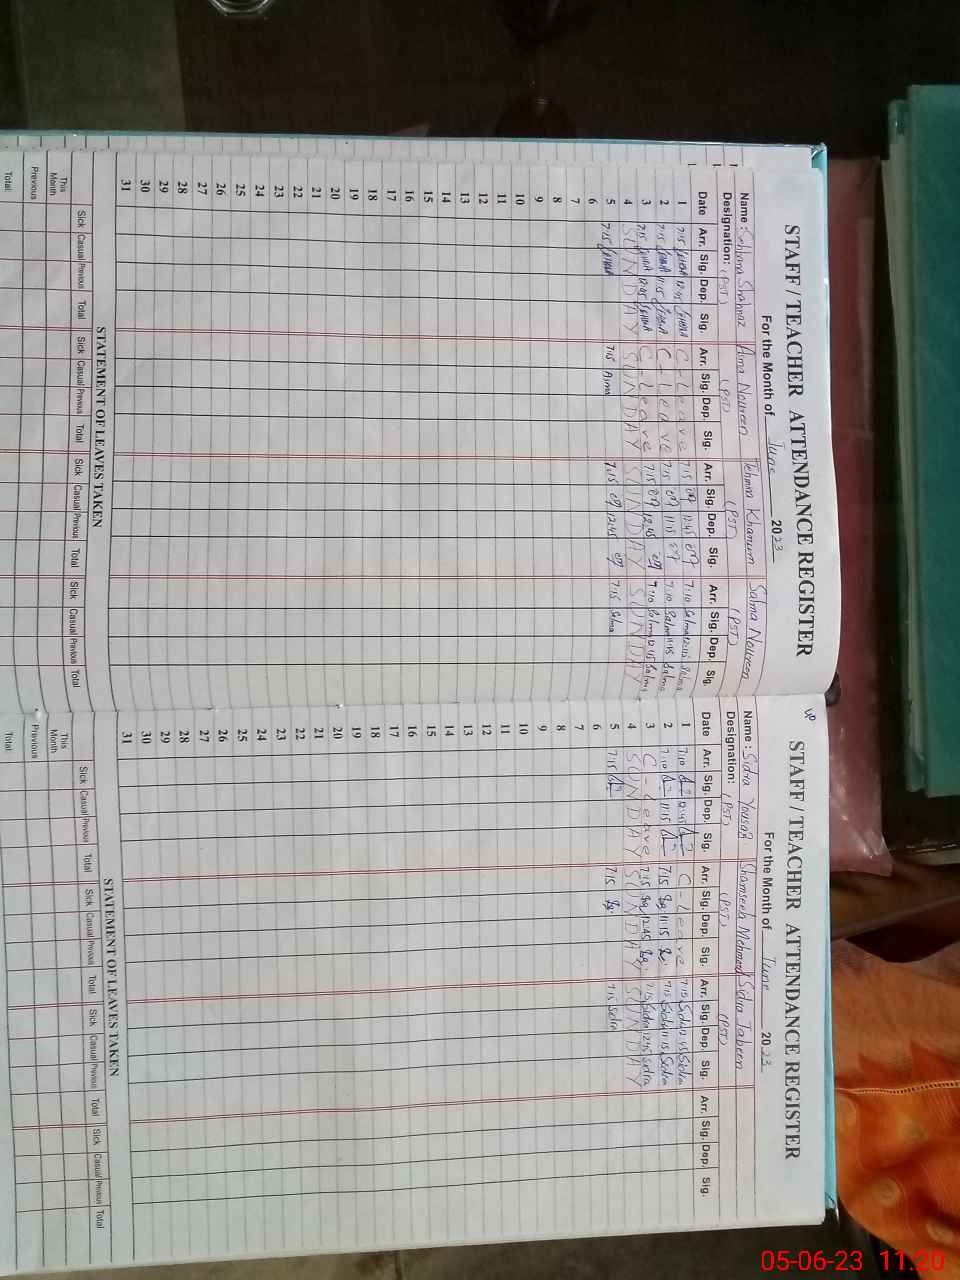 STAFF / TEACHER ATTENDANCE REGISTER
For the Month of June 2023
Name : Shahnaz Aima Noureen Khanum Salma Noureen
Designation: (PST) (PST) (PST) (PST)
Date Arr. Sig. Dep. Sig. Arr. Sig. Dep. Sig. Arr. Sig. Dep. Sig. Arr. Sig. Dep. Sig.
1 7:15 12:45 C-Leave 7:15 12:45 7:10 Salma 12:45 Salma
2 7:15 11:15 C-Leave 7:15 11:15 7:10 Salma 11:15 Salma
3 7:15 12:45 C-Leave 7:15 12:45 7:10 Salma 12:45 Salma
4 SUNDAY SUNDAY SUNDAY SUNDAY
5 7:15 7:15 Aima 7:15 12:45 7:15 Salma
6
7
8
9
10
11
12
13
14
15
16
17
18
19
20
21
22
23
24
25
26
27
28
29
30
31
STATEMENT OF LEAVES TAKEN
Sick Casual Previous Total Sick Casual Previous Total Sick Casual Previous Total Sick Casual Previous Total
This Month
Previous
Total
STAFF / TEACHER ATTENDANCE REGISTER
For the Month of June 2023
Name : Sidra Yousaf Mehmood Sidra Jabeen
Designation: (PST) (PST) (PST)
Date Arr. Sig. Dep. Sig. Arr. Sig. Dep. Sig. Arr. Sig. Dep. Sig. Arr. Sig. Dep. Sig.
1 7:10 12:45 C-Leave 7:15 Sidra 12:45 Sidra
2 7:10 11:15 7:15 11:15 7:15 Sidra 11:15 Sidra
3 C-Leave 7:15 12:45 7:15 Sidra 12:45 Sidra
4 SUNDAY SUNDAY SUNDAY
5 7:15 7:15 7:15 Sidra
6
7
8
9
10
11
12
13
14
15
16
17
18
19
20
21
22
23
24
25
26
27
28
29
30
31
STATEMENT OF LEAVES TAKEN
Sick Casual Previous Total Sick Casual Previous Total Sick Casual Previous Total Sick Casual Previous Total
This Month
Previous
Total
05-06-23 11:20